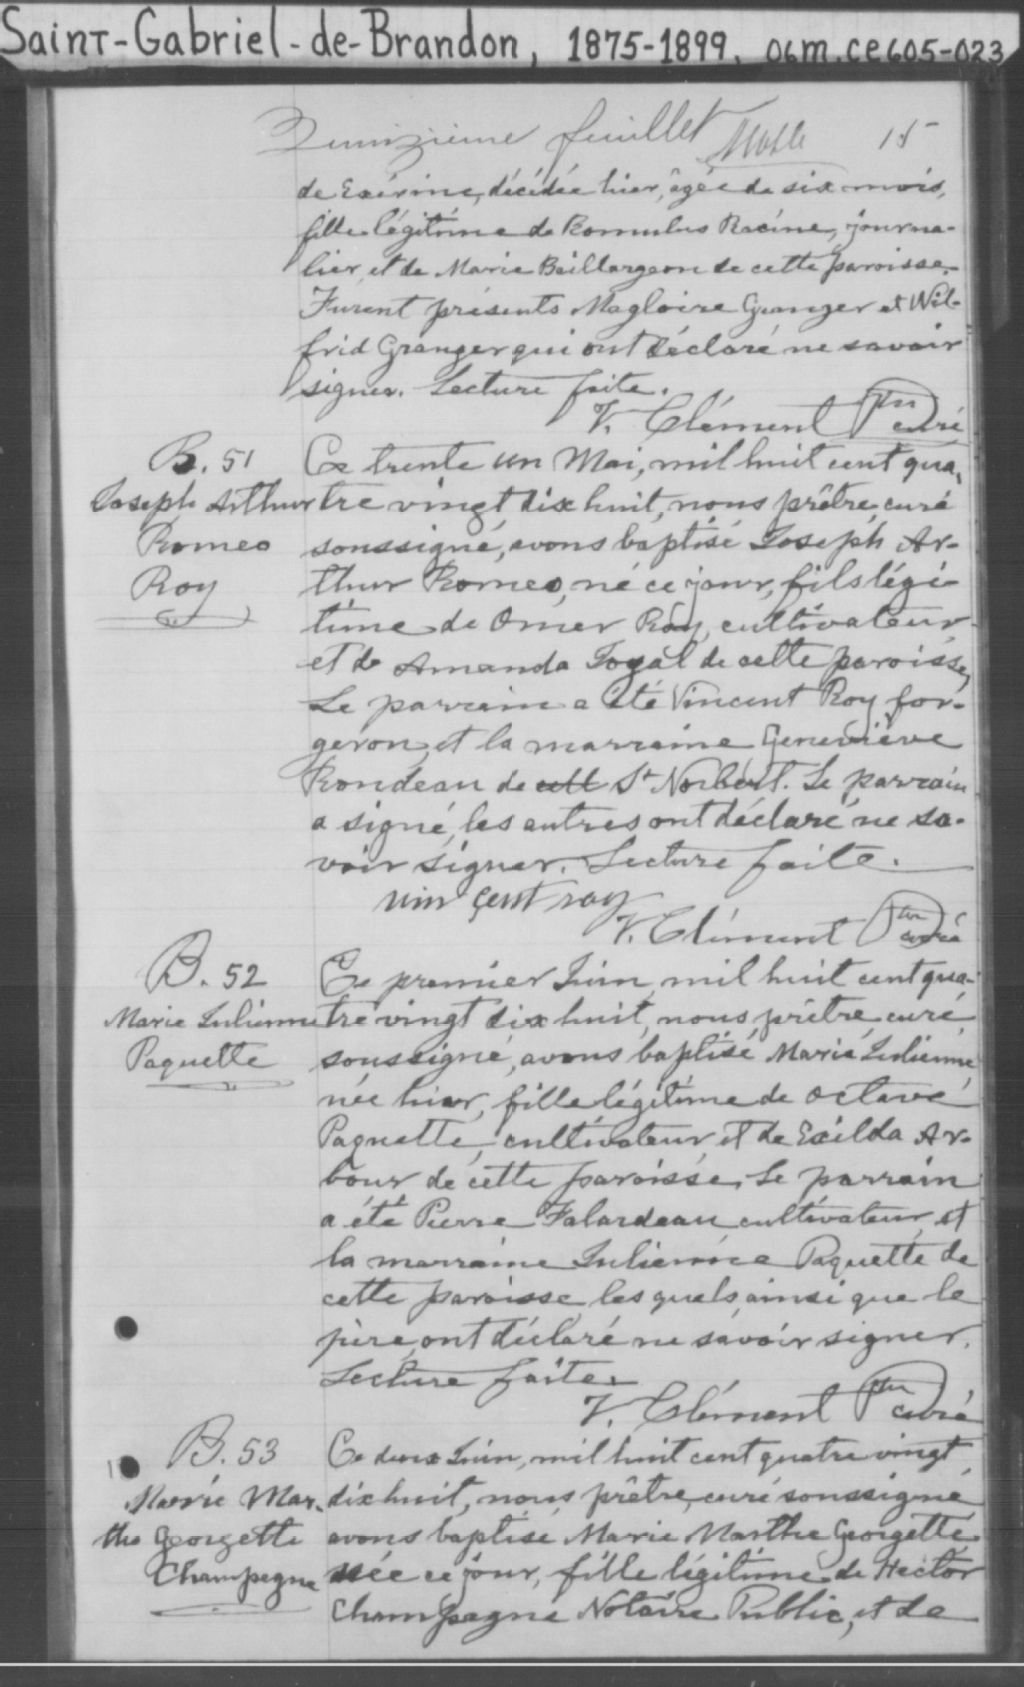 Saint-Gabriel-de-Brandon, 1875-1899. 06M.CE605-023
Quinzième feuillet 15
de Exérine, décédée hier, âgée de six mois,
fille légitime de Romulus Racine, journa-
lier et de Marie Baillargeon de cette paroisse.
Furent présents Magloire Granger et Wil-
frid Granger qui ont déclaré ne savoir
signer. Lecture faite.
V. Clément Ptre curé
B. 51
Joseph Arthur
Romeo
Roy
Ce trente un Mai, mil huit cent qua-
tre vingt dix huit, nous prêtre, curé
soussigné, avons baptisé Joseph Ar-
thur Romeo, né ce jour, fils légi-
time de Omer Roy, cultivateur
et de Amanda Loyal de cette paroisse,
Le parrain a été Vincent Roy for-
geron, et la marraine Geneviève
Rondeau de cett St Norbert. Le parrain
a signé, les autres ont déclaré ne sa-
voir signer. Lecture faite.
vin çent roy
V. Clément Ptre curé
B. 52
Marie Julienne
Paquette
Ce premier Juin, mil huit cent qua-
tre vingt dix huit, nous, prêtre, curé
soussigné, avons baptisé Marie Julienne,
née hier, fille légitime de Octave
Paquette, cultivateur, et de Exilda Ar-
bour de cette paroisse, Le parrain
a été Pierre Falardeau, cultivateur, et
la marraine Julienne Paquette de
cette paroisse les quels, ainsi que le
père, ont déclaré ne savoir signer.
Lecture faite.
V. Clément Ptre curé
B. 53
Marie Mar-
the Georgette
Champagne
Ce deux Juin, mil huit cent quatre vingt
dix huit, nous, prêtre, curé soussigné
avons baptisé Marie Marthe Georgette
née ce jour, fille légitime de Hector
Champagne Notaire Public, et de